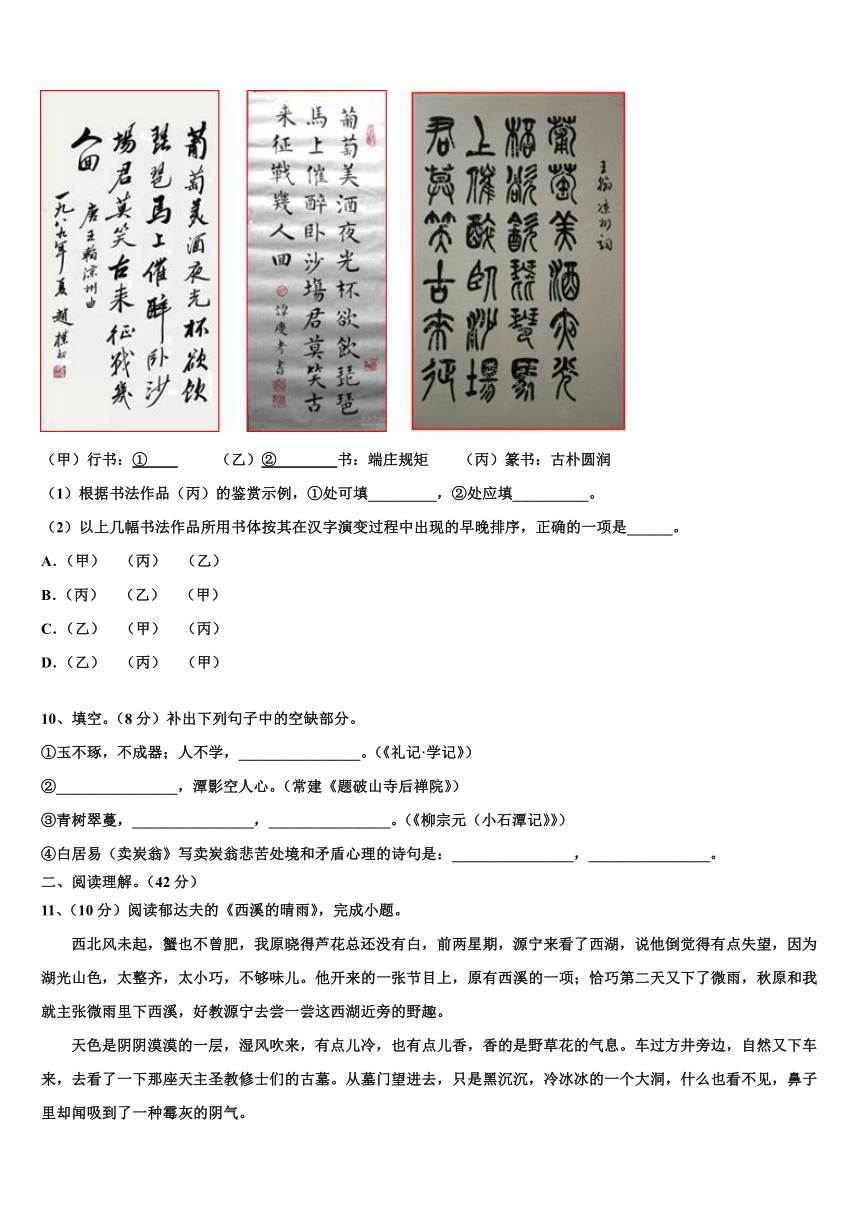 葡萄美酒夜光杯欲饮
琵琶马上催醉卧沙
場君莫笑古来征战幾
人回
唐王翰涼州曲
一九八九年夏 趙樸初
葡萄美酒夜光杯欲飲琵琶
馬上催醉卧沙場君莫笑古
来征戰幾人回
葡萄美酒夜光
杯欲飲琵琶馬
上催醉卧沙場
君莫笑古来征
王翰凉州词
（甲）行书：①____ （乙）②________书：端庄规矩 （丙）篆书：古朴圆润
（1）根据书法作品（丙）的鉴赏示例，①处可填_________，②处应填__________。
（2）以上几幅书法作品所用书体按其在汉字演变过程中出现的早晚排序，正确的一项是______。
A.（甲） （丙） （乙）
B.（丙） （乙） （甲）
C.（乙） （甲） （丙）
D.（乙） （丙） （甲）
10、填空。（8分）补出下列句子中的空缺部分。
①玉不琢，不成器；人不学，________________。（《礼记·学记》）
②________________，潭影空人心。（常建《题破山寺后禅院》）
③青树翠蔓，________________，________________。（《柳宗元（小石潭记》》）
④白居易（卖炭翁》写卖炭翁悲苦处境和矛盾心理的诗句是：________________，________________。
二、阅读理解。（42分）
11、（10分）阅读郁达夫的《西溪的晴雨》，完成小题。
西北风未起，蟹也不曾肥，我原晓得芦花总还没有白，前两星期，源宁来看了西湖，说他倒觉得有点失望，因为
湖光山色，太整齐，太小巧，不够味儿。他开来的一张节目上，原有西溪的一项；恰巧第二天又下了微雨，秋原和我
就主张微雨里下西溪，好教源宁去尝一尝这西湖近旁的野趣。
天色是阴阴漠漠的一层，湿风吹来，有点儿冷，也有点儿香，香的是野草花的气息。车过方井旁边，自然又下车
来，去看了一下那座天主圣教修士们的古墓。从墓门望进去，只是黑沉沉，冷冰冰的一个大洞，什么也看不见，鼻子
里却闻吸到了一种霉灰的阴气。